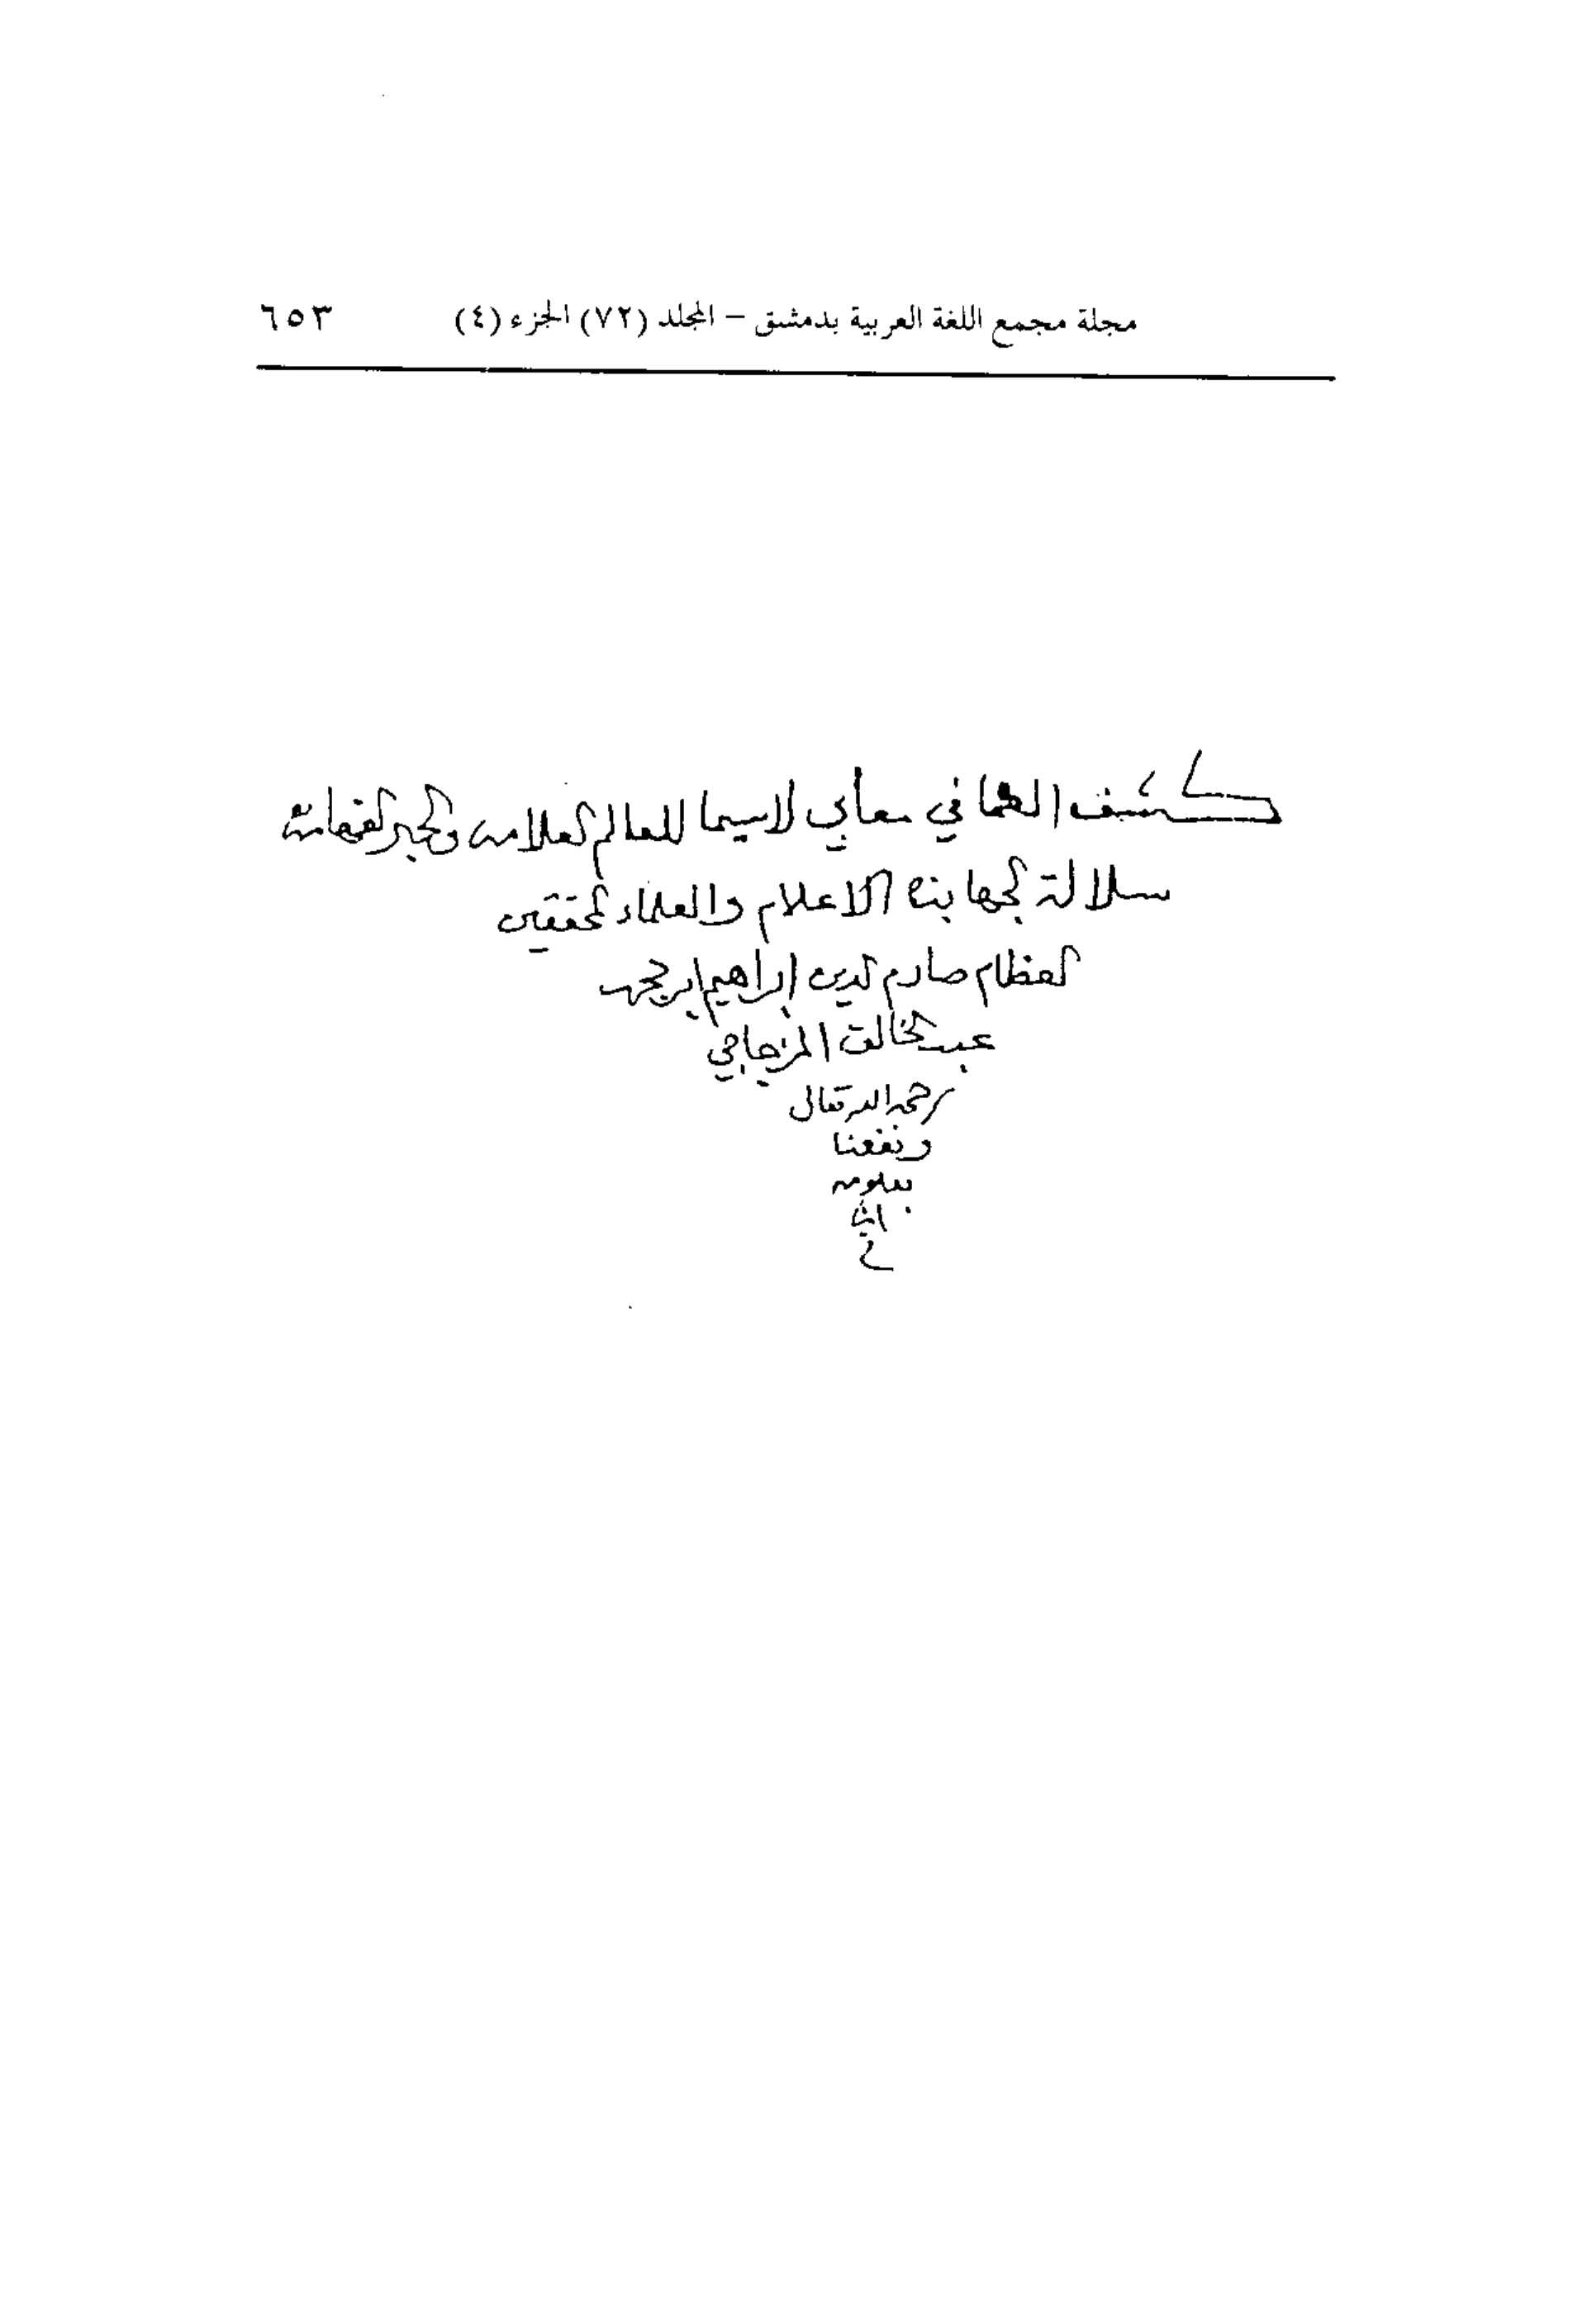 مجلة مجمع اللغة العربية بدمشق – المجلد (٧٢) الجزء (٤) ٦٥٣
كشف الغما في معاني لاسيما للعالم العلامه والحبر الفهامة
سلالة الجهابذه الاعلام والعلماء المحققين
العظام صارم الدين ابراهيم بن محمد
عبد الخالق المزجاجي
رحمه الله تعالى
ونفعنا
بعلومه